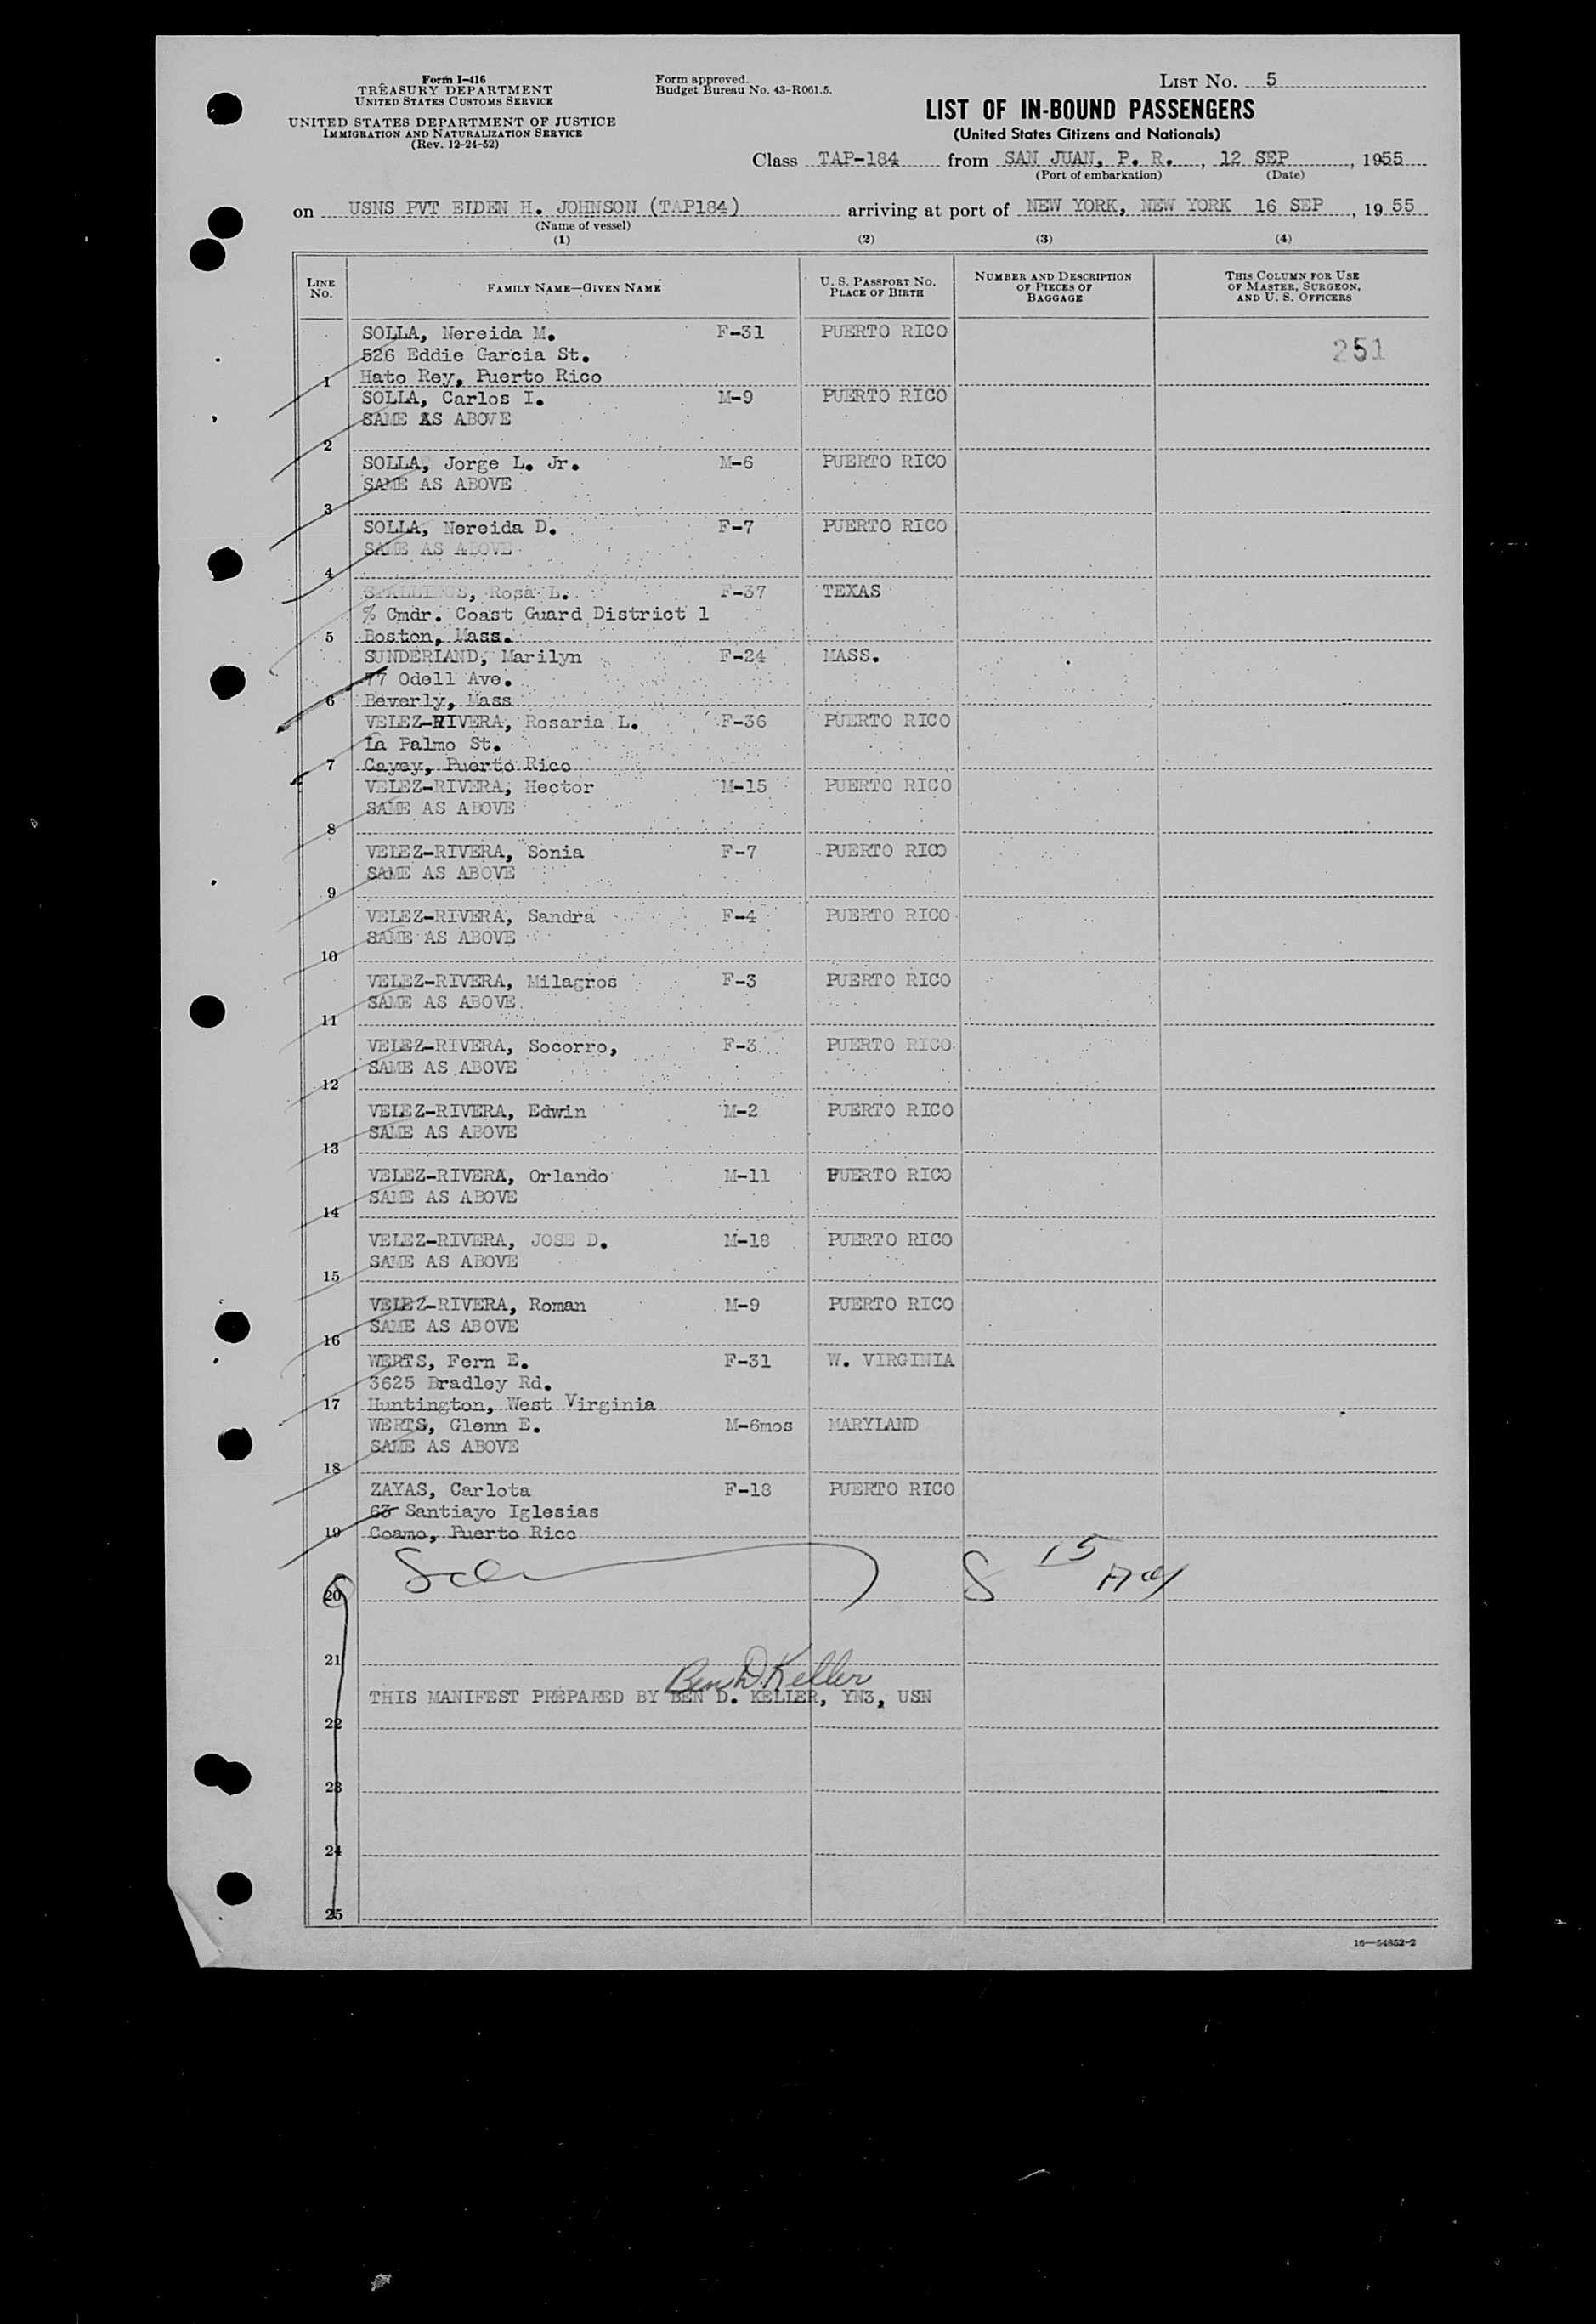 Form I-416
TREASURY DEPARTMENT
UNITED STATES CUSTOMS SERVICE
UNITED STATES DEPARTMENT OF JUSTICE
IMMIGRATION AND NATURALIZATION SERVICE
(Rev. 12-24-52)
Form approved.
Budget Bureau No. 43-R061.5.
LIST NO. 5
LIST OF IN-BOUND PASSENGERS
(United States Citizens and Nationals)
Class TAP-184 from SAN JUAN, P. R., 12 SEP, 1955
(Port of embarkation) (Date)
on USNS PVT ELDEN H. JOHNSON (TAP184) arriving at port of NEW YORK, NEW YORK 16 SEP, 1955
(Name of vessel)
(1) (2) (3) (4)
LINE NO. FAMILY NAME—GIVEN NAME U. S. PASSPORT NO. PLACE OF BIRTH NUMBER AND DESCRIPTION OF PIECES OF BAGGAGE THIS COLUMN FOR USE OF MASTER, SURGEON, AND U. S. OFFICERS
SOLLA, Nereida M. F-31 PUERTO RICO
526 Eddie Garcia St. 251
1 Hato Rey, Puerto Rico
SOLLA, Carlos I. M-9 PUERTO RICO
SAME AS ABOVE
2
SOLLA, Jorge L. Jr. M-6 PUERTO RICO
SAME AS ABOVE
3
SOLLA, Nereida D. F-7 PUERTO RICO
SAME AS ABOVE
4
SPALLINGS, Rosa L. F-37 TEXAS
% Cmdr. Coast Guard District 1
5 Boston, Mass.
SUNDERLAND, Marilyn F-24 MASS.
77 Odell Ave.
6 Beverly, Mass
VELEZ-RIVERA, Rosaria L. F-36 PUERTO RICO
La Palmo St.
7 Cayey, Puerto Rico
VELEZ-RIVERA, Hector M-15 PUERTO RICO
SAME AS ABOVE
8
VELEZ-RIVERA, Sonia F-7 PUERTO RICO
SAME AS ABOVE
9
VELEZ-RIVERA, Sandra F-4 PUERTO RICO
SAME AS ABOVE
10
VELEZ-RIVERA, Milagros F-3 PUERTO RICO
SAME AS ABOVE
11
VELEZ-RIVERA, Socorro, F-3 PUERTO RICO
SAME AS ABOVE
12
VELEZ-RIVERA, Edwin M-2 PUERTO RICO
SAME AS ABOVE
13
VELEZ-RIVERA, Orlando M-11 PUERTO RICO
SAME AS ABOVE
14
VELEZ-RIVERA, JOSE D. M-18 PUERTO RICO
SAME AS ABOVE
15
VELEZ-RIVERA, Roman M-9 PUERTO RICO
SAME AS ABOVE
16
WERTS, Fern E. F-31 W. VIRGINIA
3625 Bradley Rd.
17 Huntington, West Virginia
WERTS, Glenn E. M-6mos MARYLAND
SAME AS ABOVE
18
ZAYAS, Carlota F-18 PUERTO RICO
63 Santiayo Iglesias
19 Coamo, Puerto Rico
15
20
21
Ben D. Keller
THIS MANIFEST PREPARED BY BEN D. KELLER, YN3, USN
22
23
24
25
16—54852-2